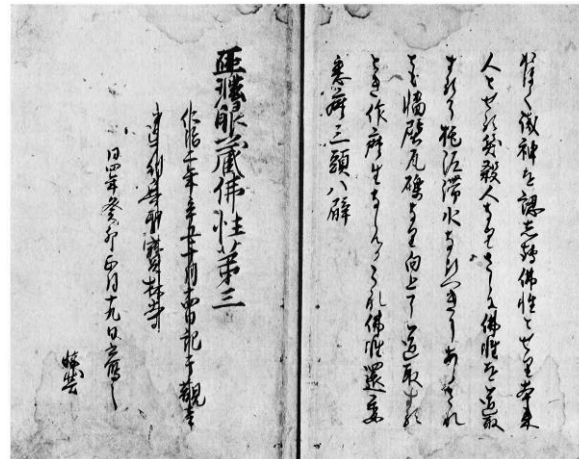 おほく識神を認して佛性とせり本來
人とせる笑殺人なりさらに佛性を道取
するに拕泥滞水なるへきにあらされ
とも牆壁瓦礫なり向上に道取する
とき作麼生ならんかこれ佛性還委
悉麼三頭八臂
正法眼藏佛性第三
仁治二年辛丑十月十四日記于觀音
導利興聖寶林寺
同四年癸卯正月十九日書寫之
懐奘